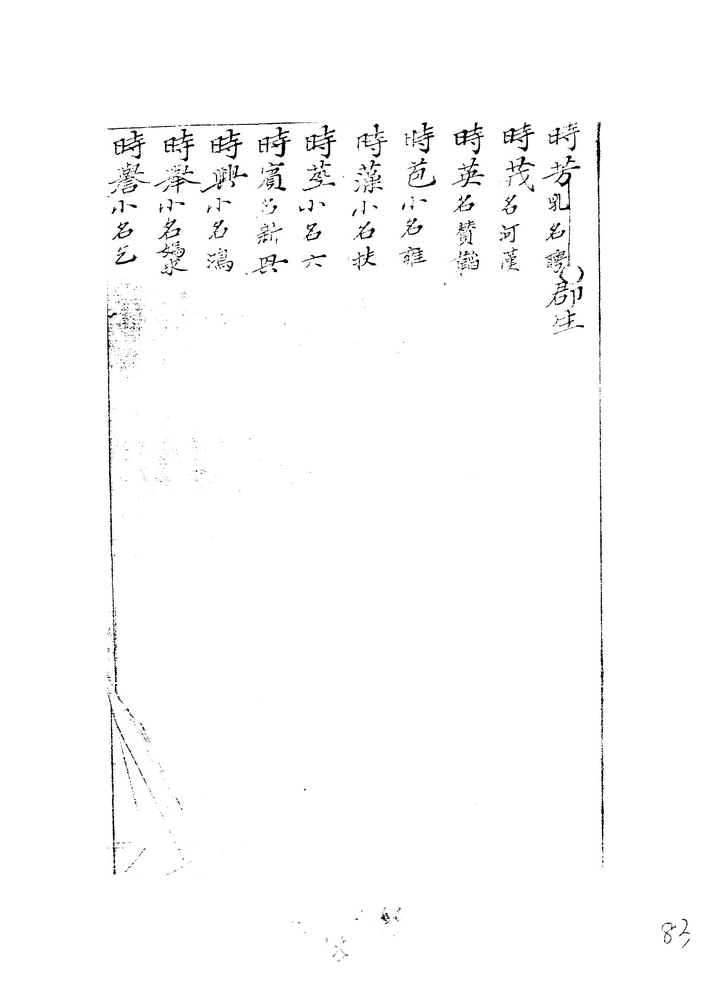 時芳乳名聘郡生
時茂名河漢
時英名贊
時苞小名雍
時藻小名扶
時莖小名六
時賓名新毋
時興小名鴻
時舉小名
時譽小名乞
83